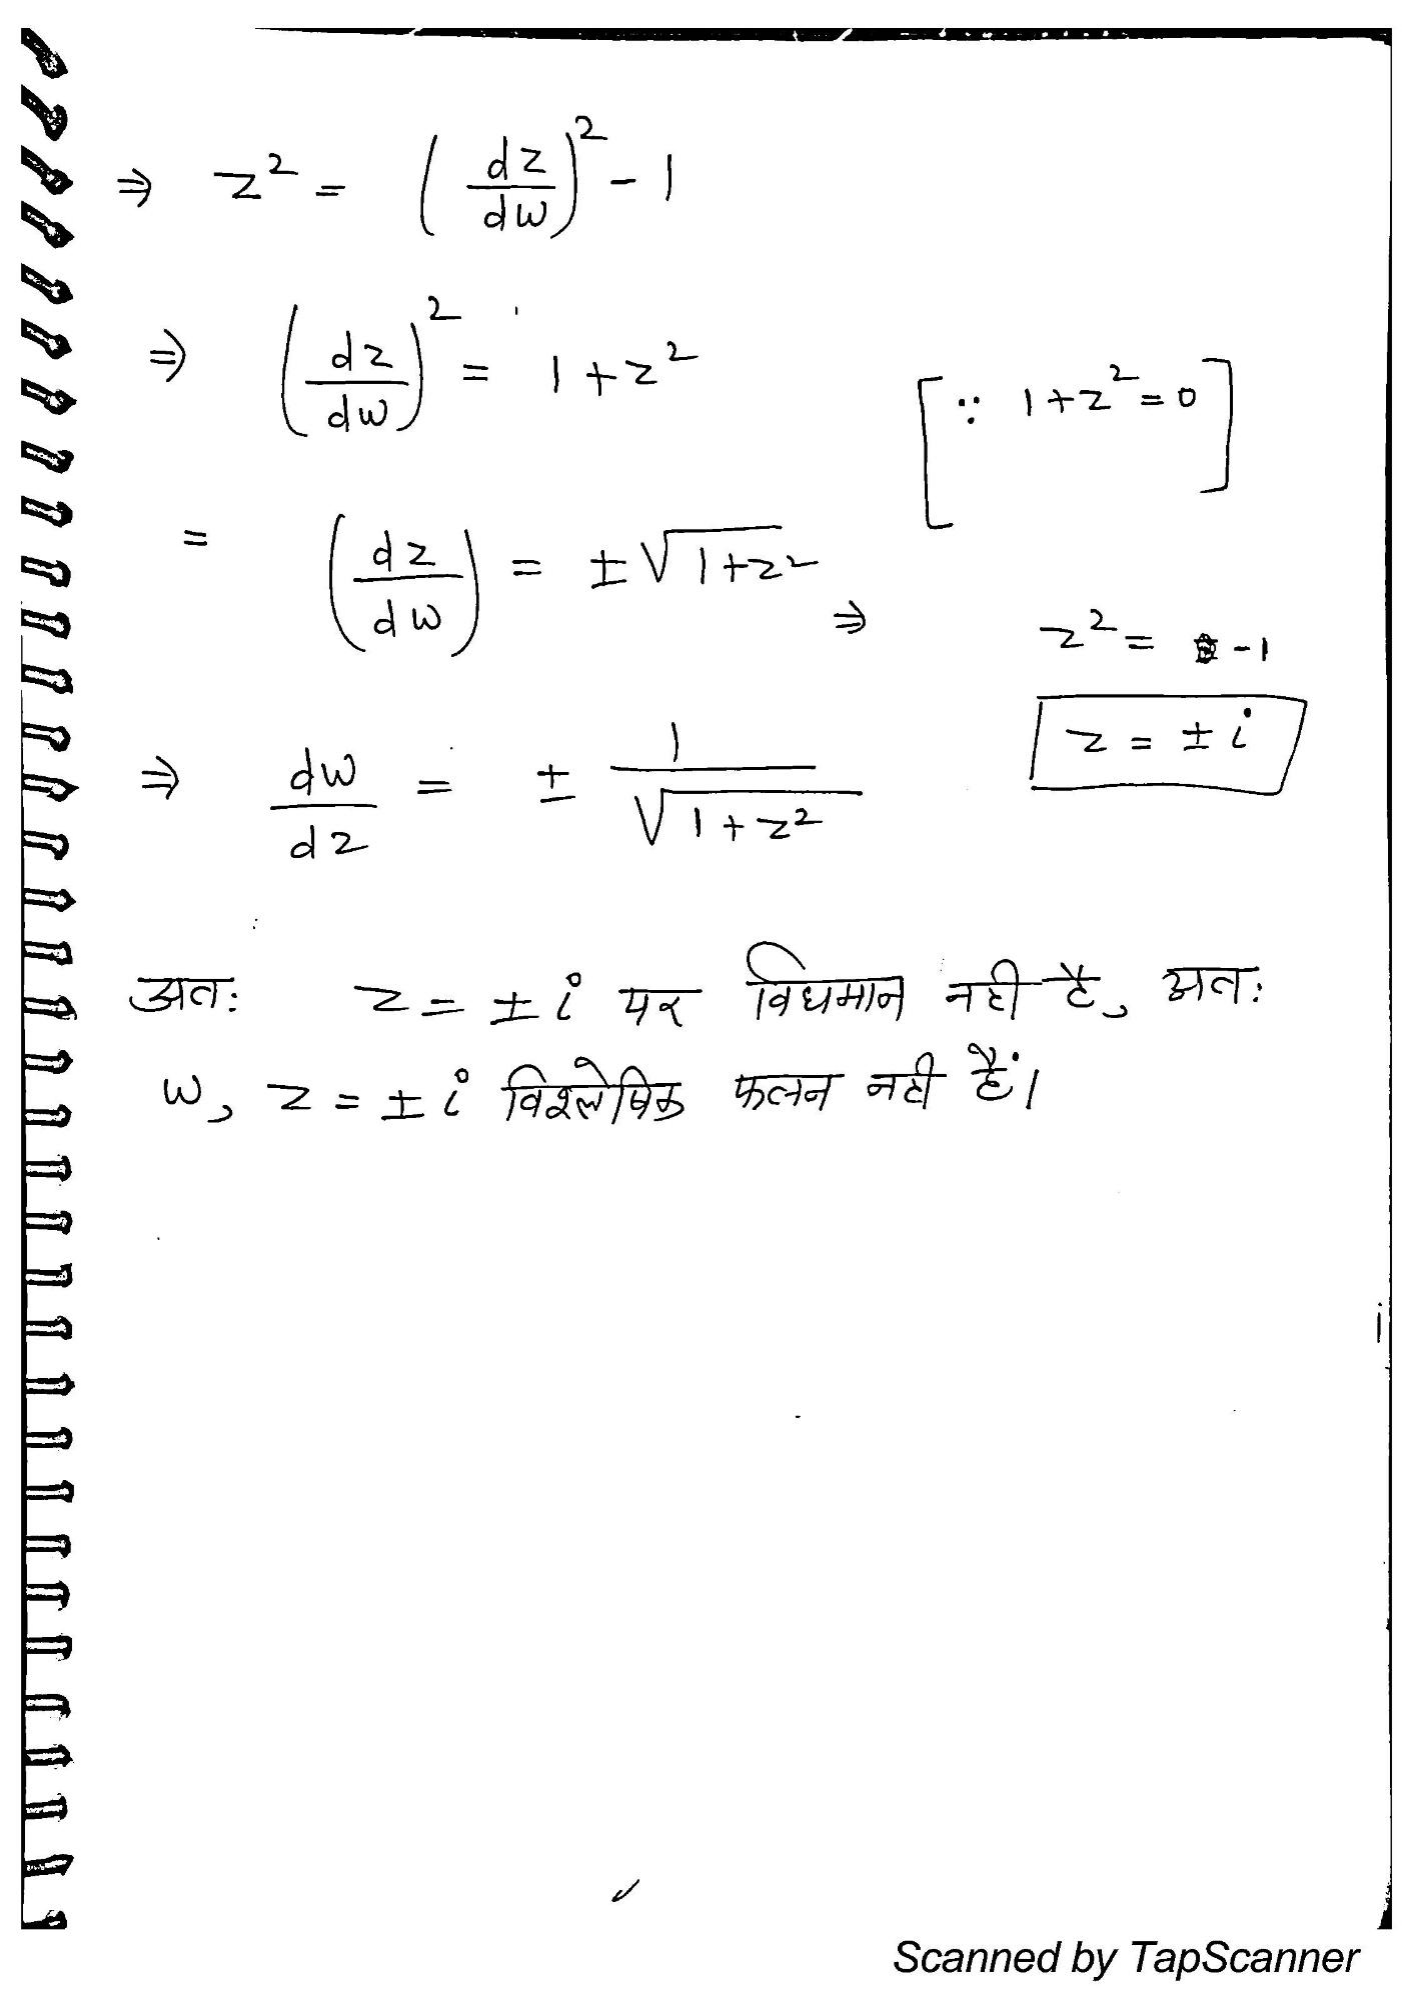 ⇒ z² = (dz/dw)² - 1
⇒ (dz/dw)² = 1 + z²
[∵ 1 + z² = 0]
= (dz/dw) = ± √1+z²
⇒ z² = -1
z = ± i
⇒ dw/dz = ± 1/√1+z²
अतः z = ± i पर विधमान नही है, अतः
w, z = ± i विश्लेषिक फलन नही हैं।
Scanned by TapScanner